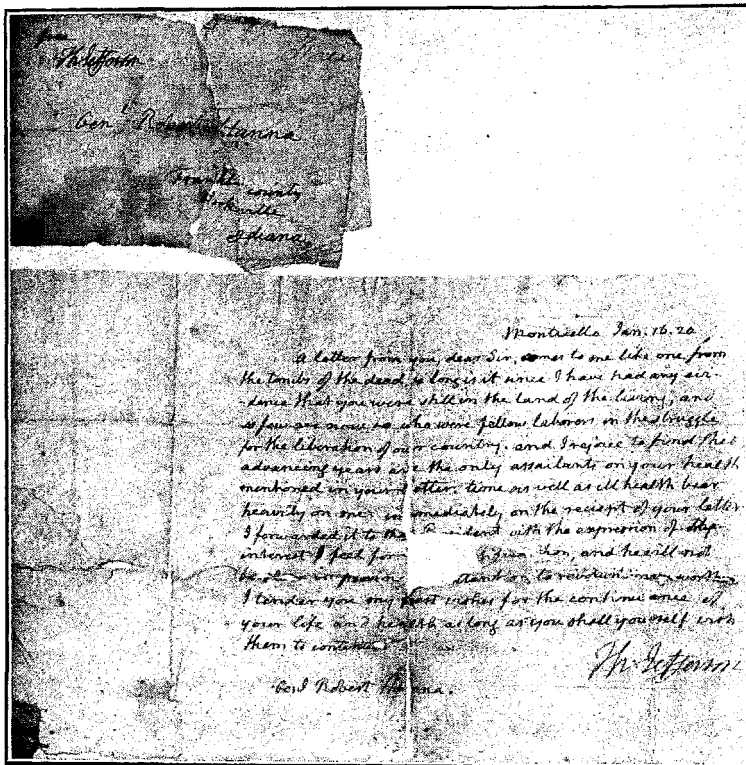 free
Th Jefferson
Genl. Robert Hanna
Franklin county
Brookville
Indiana
Monticello Jan. 16. 20
A letter from you, dear Sir, comes to me like one from
the tombs of the dead, so long is it since I have had any evi-
-dence that you were still in the land of the living, and
so few are now so who were fellow laborers in the struggle
for the liberation of our country. and I rejoice to find that
advancing years are the only assailants on your health
mentioned in your letter. time as well as ill health bear
heavily on me. immediately on the reciept of your letter
I forwarded it to the President with the expression of deep
interest I feel for and he will not
be
I tender you my best wishes for the continuance of
your life and health as long as you shall yourself wish
them to continue
Th: Jefferson
Genl Robert Hanna.